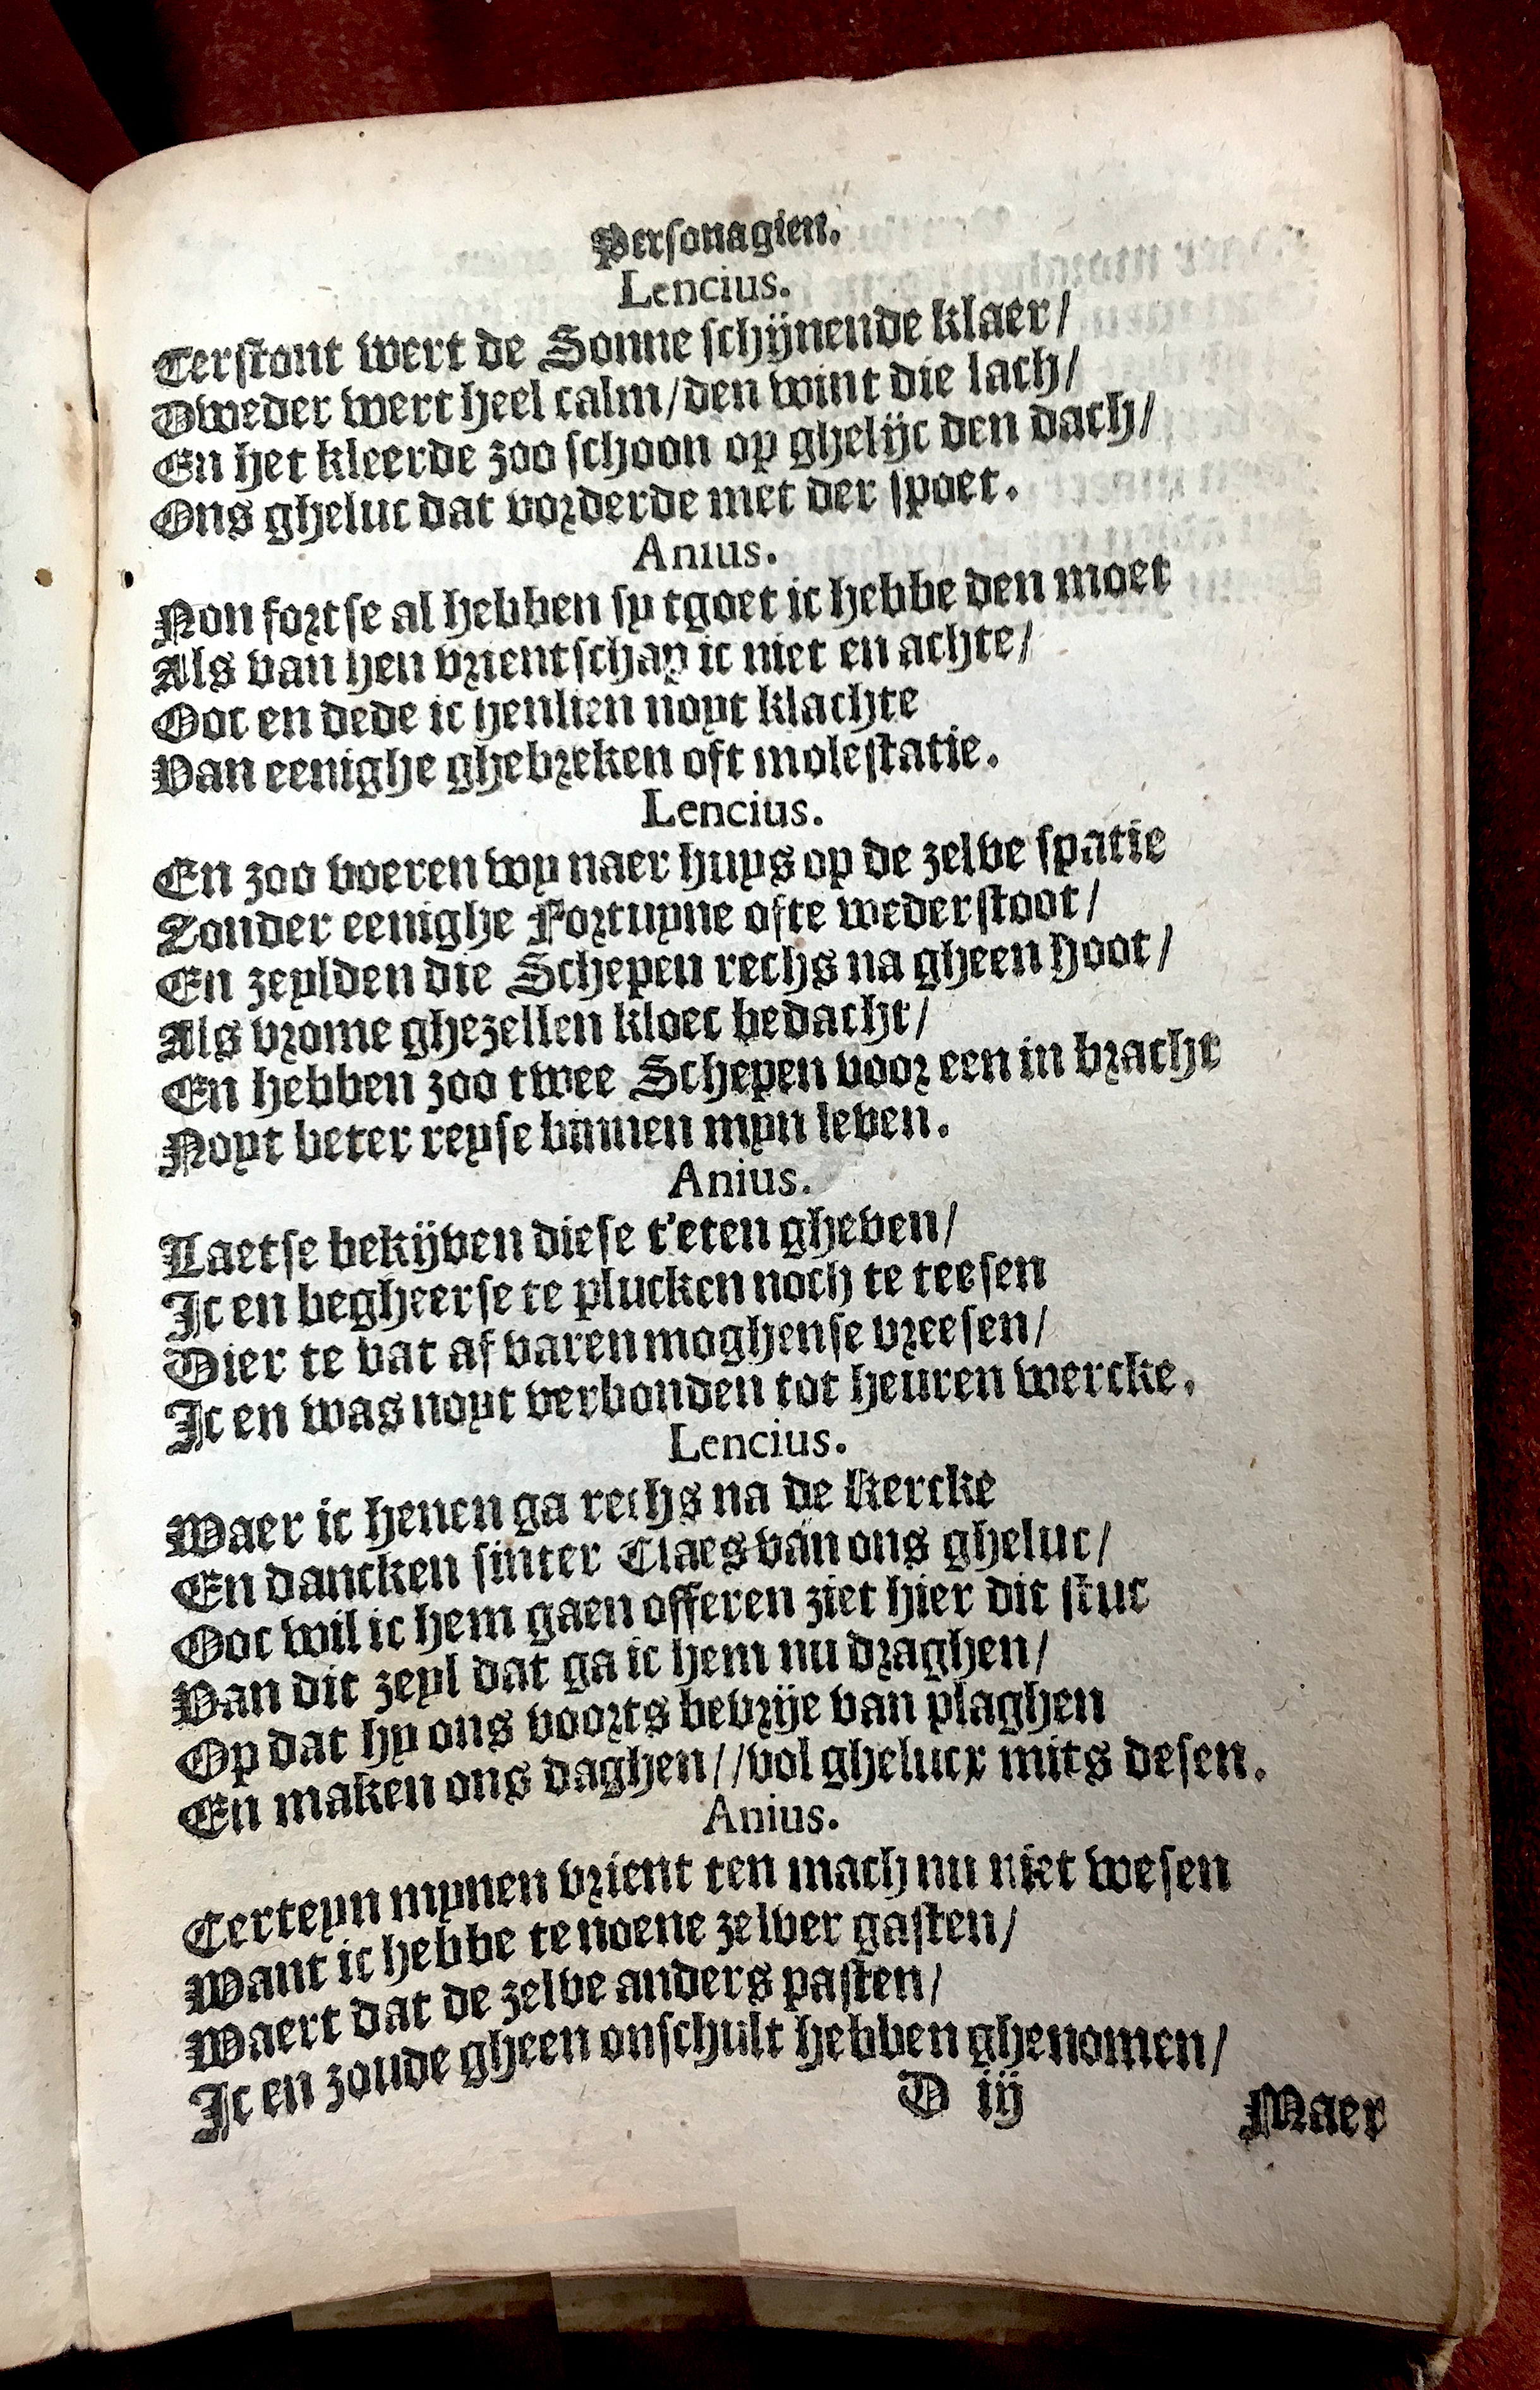 Personagien.
Lencius.
Terstont wert de Sonne schijnende klaer/
Dweder wert heel calm/den wint die lach/
En het kleerde zoo schoon op ghelijc den dach/
Ons gheluc dat vorderde met der spoet.
Anius.
Non fortse al hebben sy tgoet ic hebbe den moet
Als van hen vrientschap ic niet en achte/
Ooc en dede ic henlien noyt klachte
Van eenighe ghebreken oft molestatie.
Lencius.
En zoo voeren wy naer huys op de zelve spatie
Zonder eenighe Fortuyne ofte wederstoot/
En zeylden die Schepen rechs na gheen Hoot/
Als vrome ghezellen kloec bedacht/
En hebben zoo twee Schepen voor een in bracht
Noyt beter reyse binnen myn leven.
Anius.
Laetse bekijven diese t'eten gheven/
Ic en begheerse te plucken noch te teesen
Dier te bat af varen moghense vreesen/
Ic en was noyt verbonden tot heuren wercke.
Lencius.
Waer ic henen ga rechs na de Kercke
En dancken sinter Claes van ons gheluc/
Ooc wil ic hem gaen offeren ziet hier dit stuc
Van dit zeyl dat ga ic hem nu draghen/
Op dat hy ons voorts bevrije van plaghen
En maken ons daghen//vol ghelucx mits desen.
Anius.
Certeyn mynen vrient ten mach nu niet wesen
Want ic hebbe te noene zelver gasten/
Waert dat de zelve anders pasten/
Ic en zoude gheen onschult hebben ghenomen/
D iij
Maer